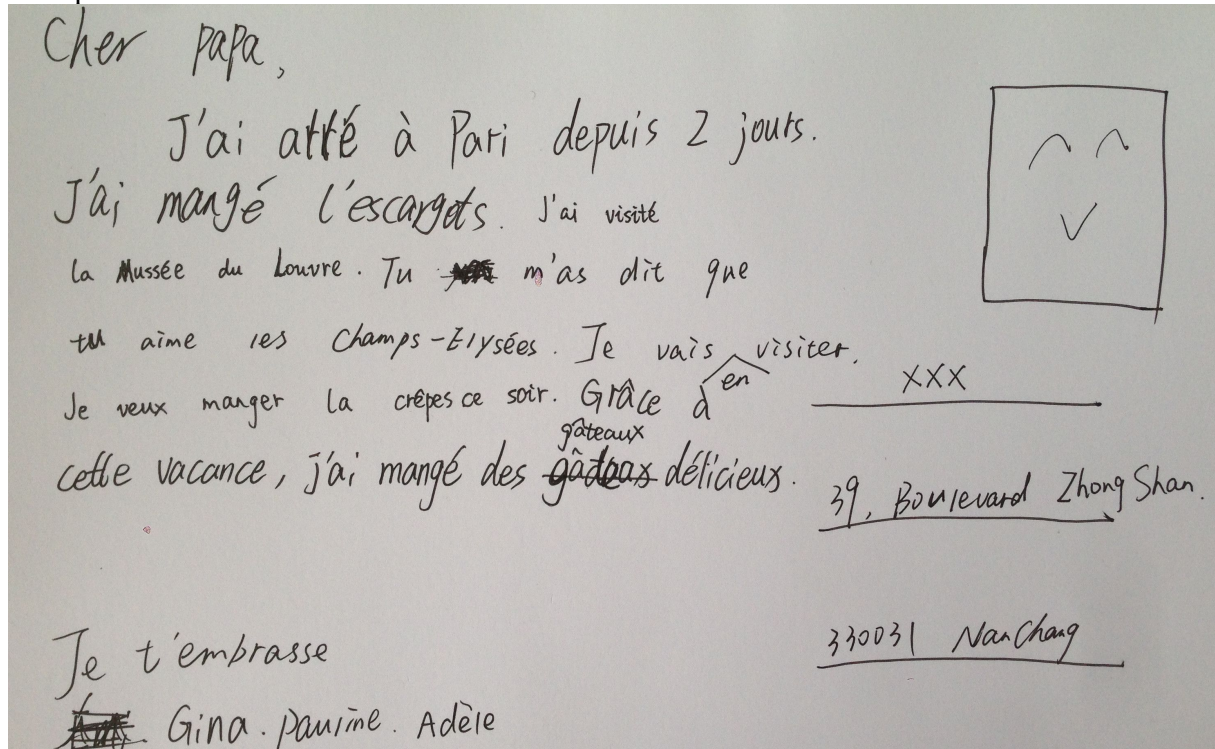 Cher papa,
J'ai atté à Pari depuis 2 jours.
J'ai mangé l'escargots. J'ai visité
la Mussée du Louvre. Tu m'as dit que
tu aime les Champs-Elysées. Je vais en visiter.
Je veux manger la crêpes ce soir. Grâce à
cette vacance, j'ai mangé des gâteaux délicieux.
Je t'embrasse
Gina. Pauline. Adèle
XXX
39, Boulevard ZhongShan.
330031 NanChang